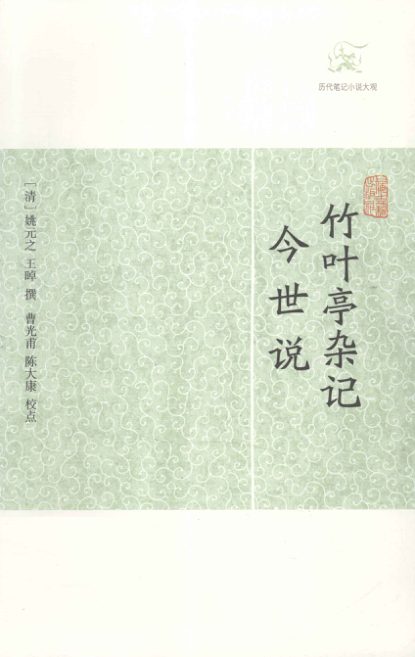 历代笔记小说大观
竹叶亭杂记
今世说
［清］姚元之 王晫 撰 曹光甫 陈大康 校点